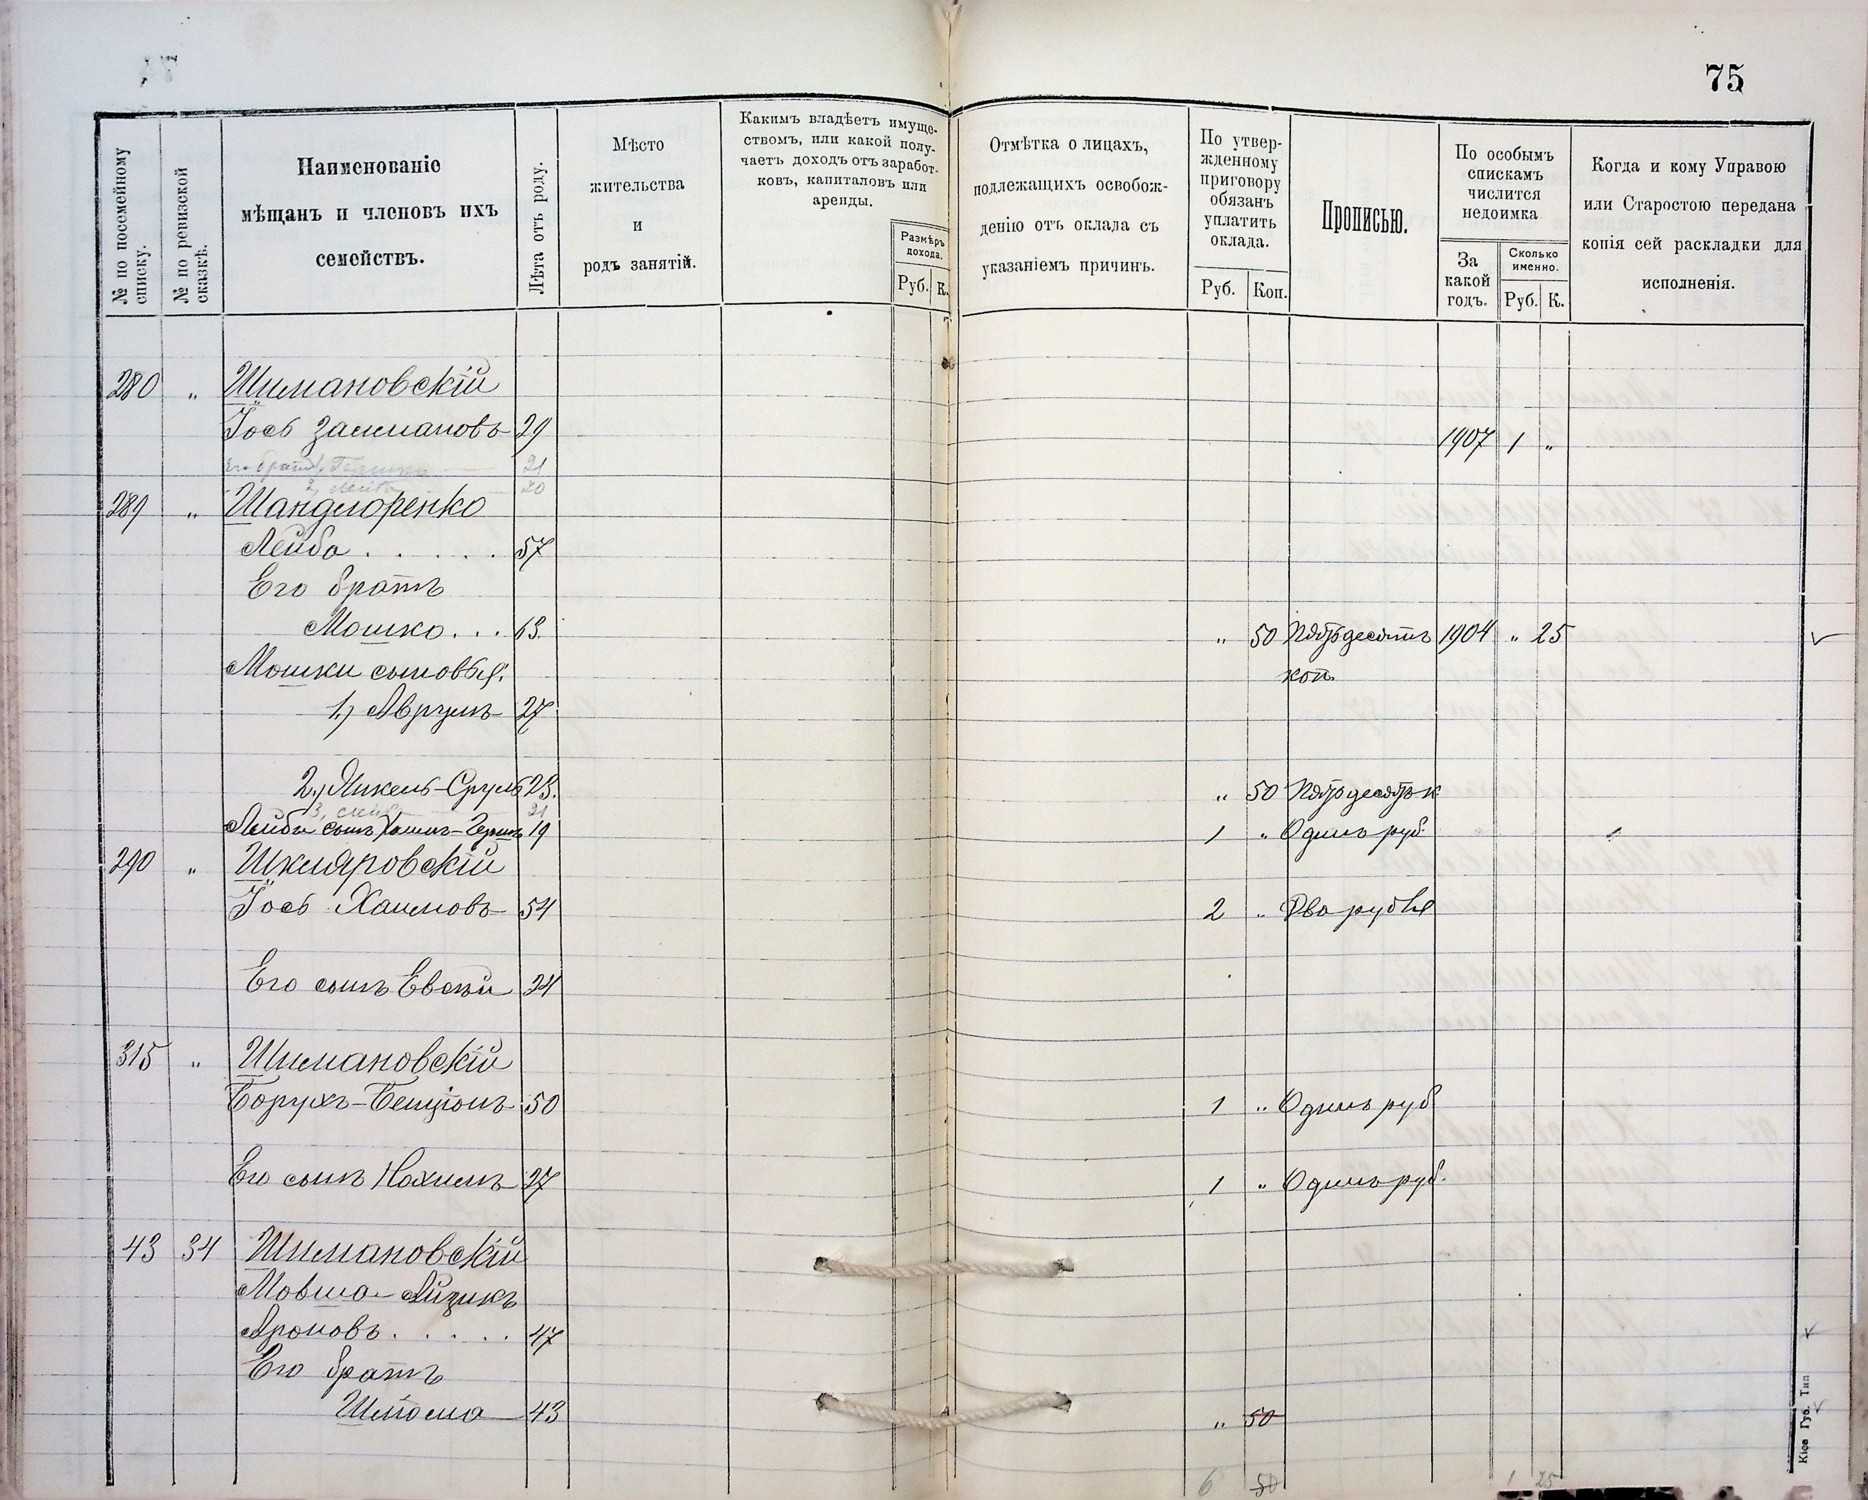 75
№ по посемейному списку.
№ по ревизской сказкѣ.
Наименованіе
мѣщанъ и членовъ ихъ
семействъ.
Лѣта отъ роду.
Мѣсто
жительства
и
родъ занятій.
Какимъ владѣетъ имуще-
ствомъ, или какой полу-
чаетъ доходъ отъ заработ-
ковъ, капиталовъ или
аренды.
Размѣръ
дохода.
Руб. К.
Отмѣтка о лицахъ,
подлежащихъ освобож-
денію отъ оклада съ
указаніемъ причинъ.
По утвер-
жденному
приговору
обязанъ
уплатить
оклада.
Руб. Коп.
Прописью.
По особымъ
спискамъ
числится
недоимка
За
какой
годъ.
Сколько
именно.
Руб. К.
Когда и кому Управою
или Старостою передана
копія сей раскладки для
исполненія.
280 " Шимановскій
Іось Залмановъ 29 1907 1 "
Его братъ Гершко 21
2, Лейба 20
289 " Шандлоренко
Лейба . . . . . 57
Его братъ
Мошко . . . 63. " 50 Пятьдесятъ 1904 " 25
Мошки сыновья: коп.
1.) Аврумъ 27
2.) Янкель-Сруль 23. " 50 Пятьдесятъ к
21
Лейбы сынъ Хаимъ-Гершъ 19 1 " Одинъ руб.
290 " Шкляровскій
Іось Хаимовъ 54 2 " Два рубля
Его сынъ Евсей 24
315 " Шимановскій
Борухъ-Бенціонъ 50 1 " Одинъ руб
Его сынъ Нохимъ 27 1 " Одинъ руб.
43 34 Шимановскій
Мовша-Айзикъ
Ароновъ . . . . . 47
Его братъ
Шлёма 43 " 50
6 50 1 25
Кіев Губ. Тип